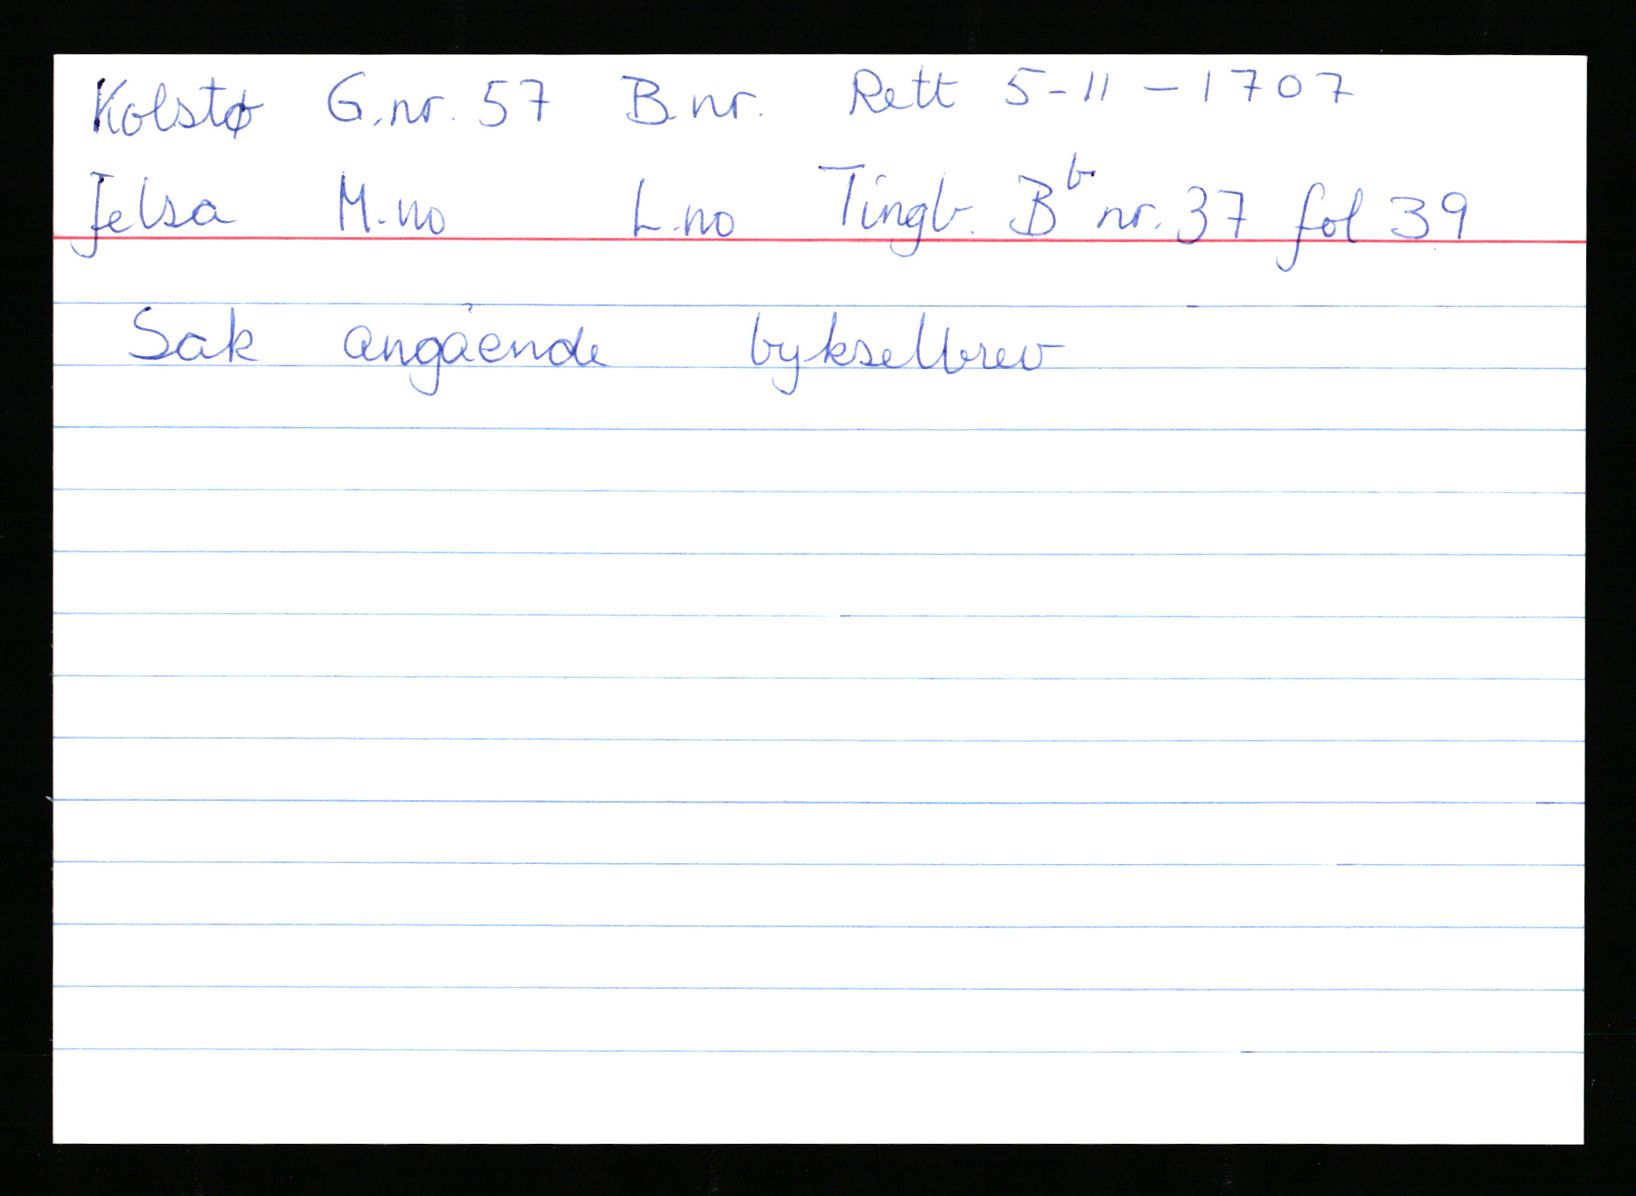 Kolstø G.nr. 57 B.nr. Rett 5-11-1707
Jelsa M.no L.no Tingb. Bb nr. 37 fol 39
Sak angående bykselbrev